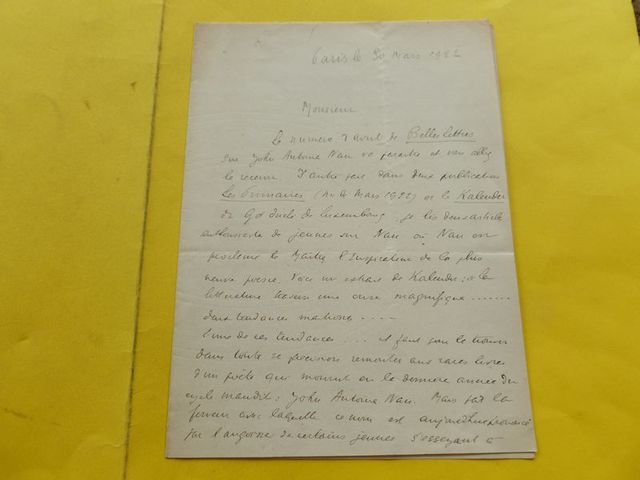 Paris le 30 Mars 1922
Monsieur
Le numéro d'avril de Belles lettres
sur John Antoine Nau va paraître et vous allez
le recevoir. D'autre part dans deux publications
Les Primaires (No 4 Mars 1922) et le Kalender
du Gd duché de Luxembourg je lis deux articles
de jeunes sur Nau où Nau est
proclamé le Maître l'Inspirateur de la plus
neuve poésie. Voici un extrait de Kalender : « la
littérature traverse une crise magnifique .......
deux tendances maîtresses ....
L'une de ces tendances ... il faut pour la trouver
dans toute sa précision remonter aux rares livres
d'un poète qui mourut en la dernière année du
cycle maudit : John Antoine Nau. Mais fait la
ferveur avec laquelle ce nom est aujourd'hui prononcé
par l'angoisse de certains jeunes s'essayant à